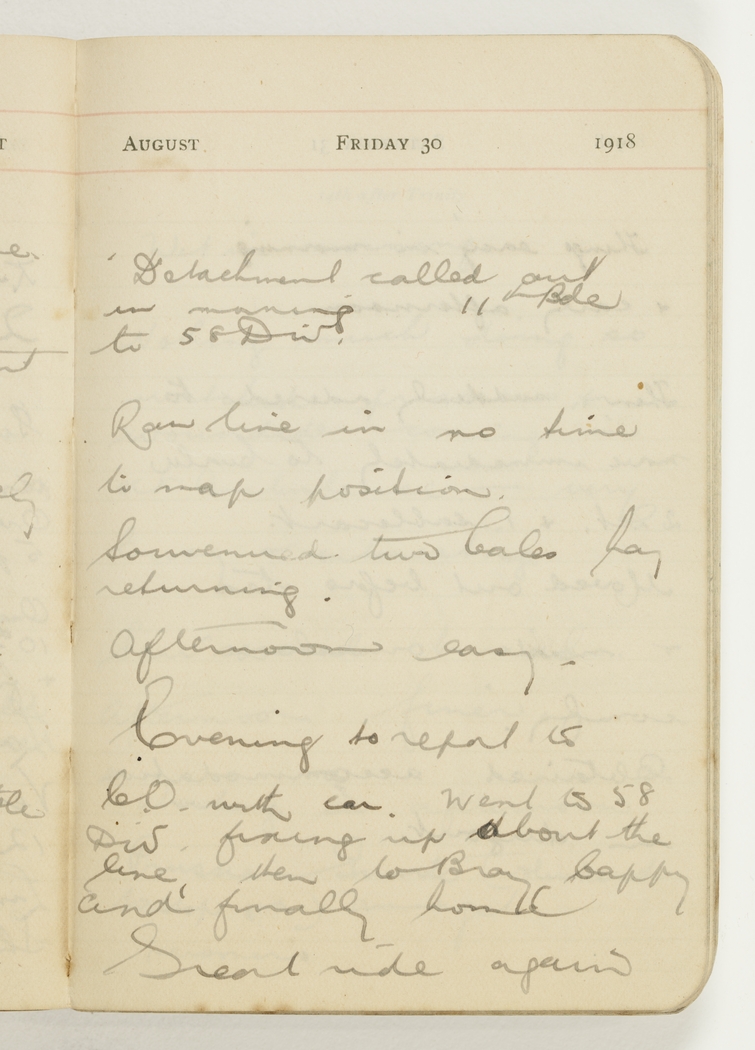 AUGUST FRIDAY 30 1918
Detachment called out
in morning 11th Bde
to 58 Div.
Ran line in no time
to map position.
Souvenired two bales hay
returning.
Afternoon easy.
Evening to report to
C.O. with car. Went to 58
Div. fixing up about the
line, then to Bray Cappy
and finally home
Great ride again